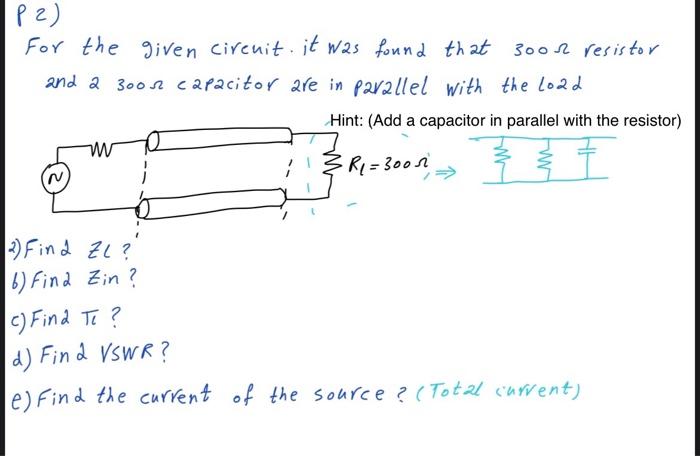 P2)
For the given circuit. it was found that 300Ω resistor
and a 300Ω capacitor are in parallel with the load
Hint: (Add a capacitor in parallel with the resistor)
R1 = 300Ω ⇒
a) Find ZL ?
b) Find Zin ?
c) Find TL ?
d) Find VSWR ?
e) Find the current of the source ? (Total current)